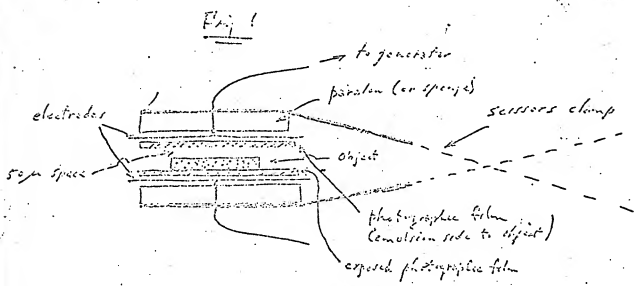 Fig 1
to generator
paralon (or sponge)
scissors clamp
electrodes
50μ space
object
photographic film
(emulsion side to object)
exposed photographic film